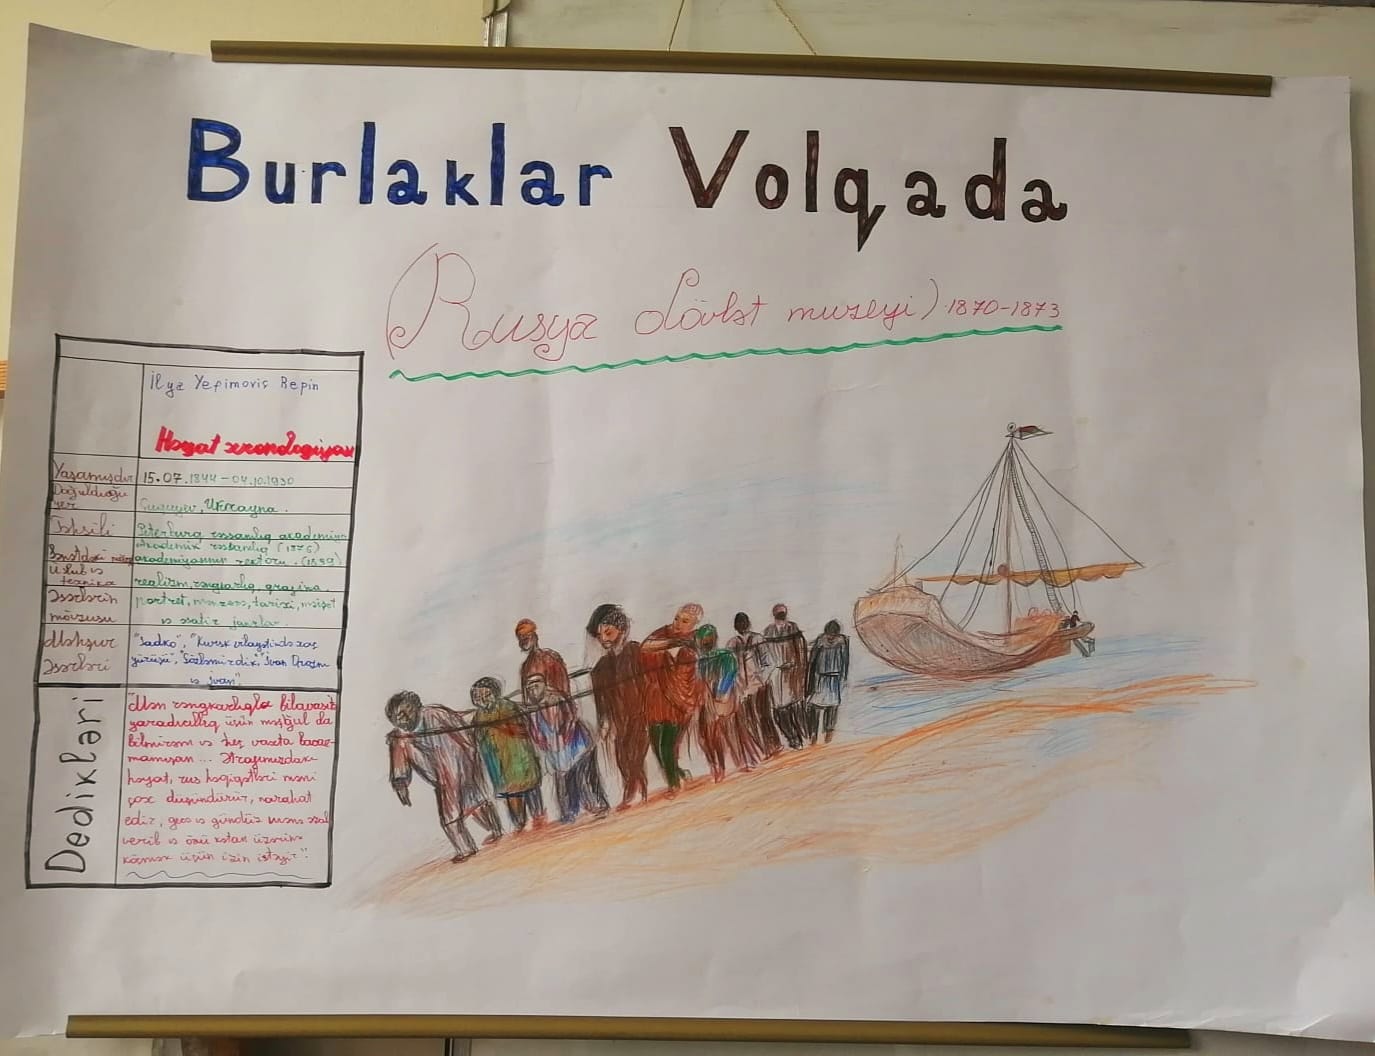 Burlaklar Volqada
Rusya dövlət muzeyi) 1870-1873
İlya Yefimoviç Repin
Həyat xronologiyası
Yaşamışdır 15.07.1844-04.10.1930
Doğulduğu yer
Çuquyev, Ukrayna.
Təhsili
Peterburq rəssamlıq akademiyası
Akademik rəssamlıq (1876)
akademiyanın rektoru. (1899)
Üslub və texnika
realizm, rəngkarlıq, qrafika
Əsərlərin mövzusu
portret, mənzərə, tarixi, məişət
və satir janrlar.
Məşhur əsərləri
"Sadko", "Kursk vilayətində xaç
yürüşü", "Gözləmirdik", "İvan Qroznı
və İvan".
Dedikləri
"Mən rəngkarlıqla bilavasitə
yaradıcılıq üçün məşğul ola
bilmirəm və heç vaxtda bacar-
mamışam ... Ətrafımızdakı
həyat, rus həqiqətləri məni
çox düşündürür, narahat
edir, gecə və gündüz mənə əzab
verib və özü kətan üzərinə
köçmək üçün izin istəyir".